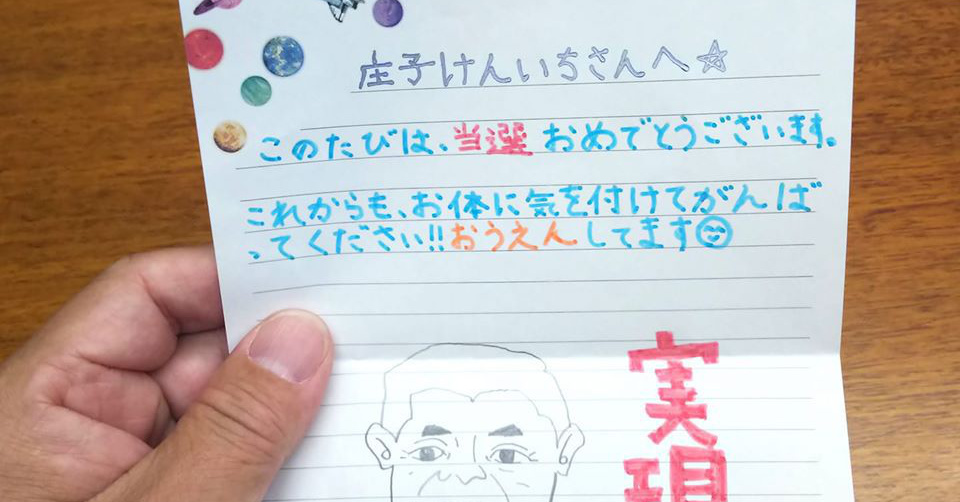 庄子けんいちさんへ☆
このたびは、当選おめでとうございます。
これからも、お体に気を付けてがんば
ってください!!おうえんしてます☺
実現